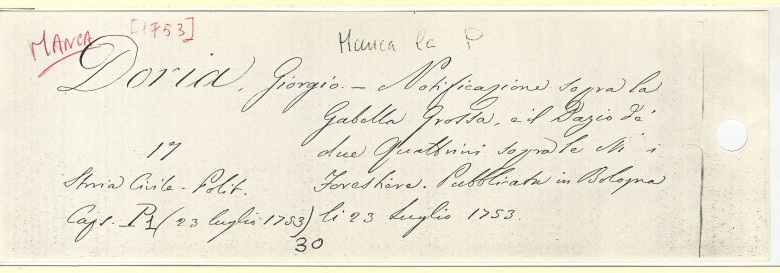 MANCA [1753] Manca la P
Doria, Giorgio. — Notificazione sopra la
Gabella Grossa, e il Dazio de'
17 due Quattrini sopra le M i
Storia Civile-Polit. Forestiere. Pubblicata in Bologna
Caps. P1 (23 luglio 1753) li 23 Luglio 1753.
30